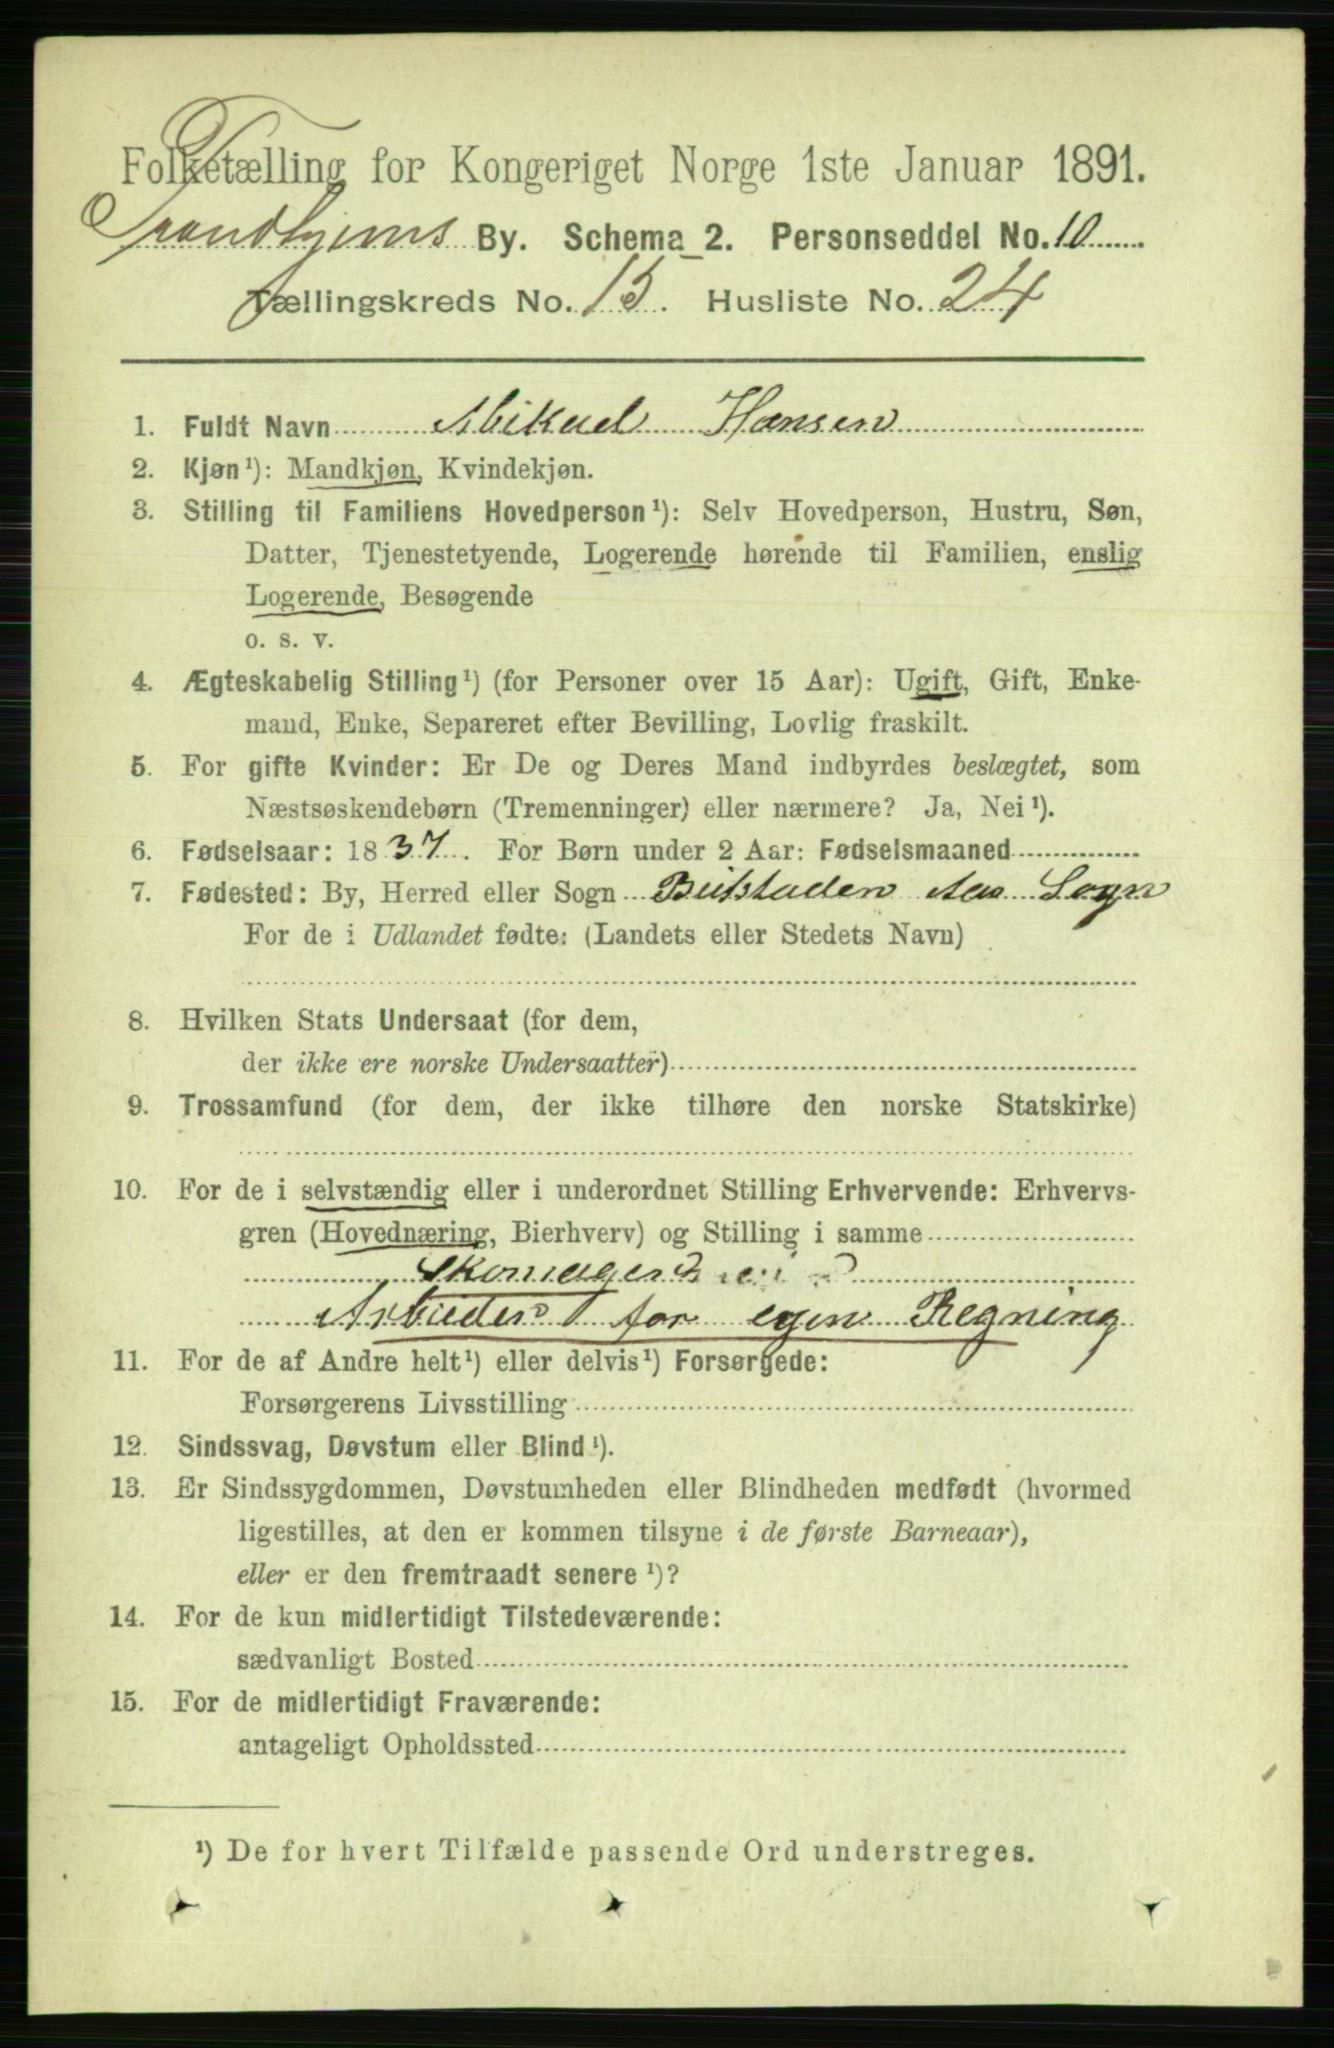 Folketælling for Kongeriget Norge 1ste Januar 1891.
Trondhjems By. Schema 2. Personseddel No. 10
Tællingskreds No. 15. Husliste No. 24
1. Fuldt Navn Mikael Hansen
2. Kjøn ¹): Mandkjøn, Kvindekjøn.
3. Stilling til Familiens Hovedperson ¹): Selv Hovedperson, Hustru, Søn,
Datter, Tjenestetyende, Logerende hørende til Familien, enslig
Logerende, Besøgende
o. s. v.
4. Ægteskabelig Stilling ¹) (for Personer over 15 Aar): Ugift, Gift, Enke-
mand, Enke, Separeret efter Bevilling, Lovlig fraskilt.
5. For gifte Kvinder: Er De og Deres Mand indbyrdes beslægtet, som
Næstsøskendebørn (Tremenninger) eller nærmere? Ja, Nei ¹).
6. Fødselsaar: 1837. For Børn under 2 Aar: Fødselsmaaned
7. Fødested: By, Herred eller Sogn Beitstaden Aas Sogn
For de i Udlandet fødte: (Landets eller Stedets Navn)
8. Hvilken Stats Undersaat (for dem,
der ikke ere norske Undersaatter)
9. Trossamfund (for dem, der ikke tilhøre den norske Statskirke)
10. For de i selvstændig eller i underordnet Stilling Erhvervende: Erhvervs-
gren (Hovednæring, Bierhverv) og Stilling i samme
Skomager
Arbeider for egen Regning
11. For de af Andre helt ¹) eller delvis ¹) Forsørgede:
Forsørgerens Livsstilling
12. Sindssvag, Døvstum eller Blind ¹).
13. Er Sindssygdommen, Døvstumheden eller Blindheden medfødt (hvormed
ligestilles, at den er kommen tilsyne i de første Barneaar),
eller er den fremtraadt senere ¹)?
14. For de kun midlertidigt Tilstedeværende:
sædvanligt Bosted
15. For de midlertidigt Fraværende:
antageligt Opholdssted
¹) De for hvert Tilfælde passende Ord understreges.